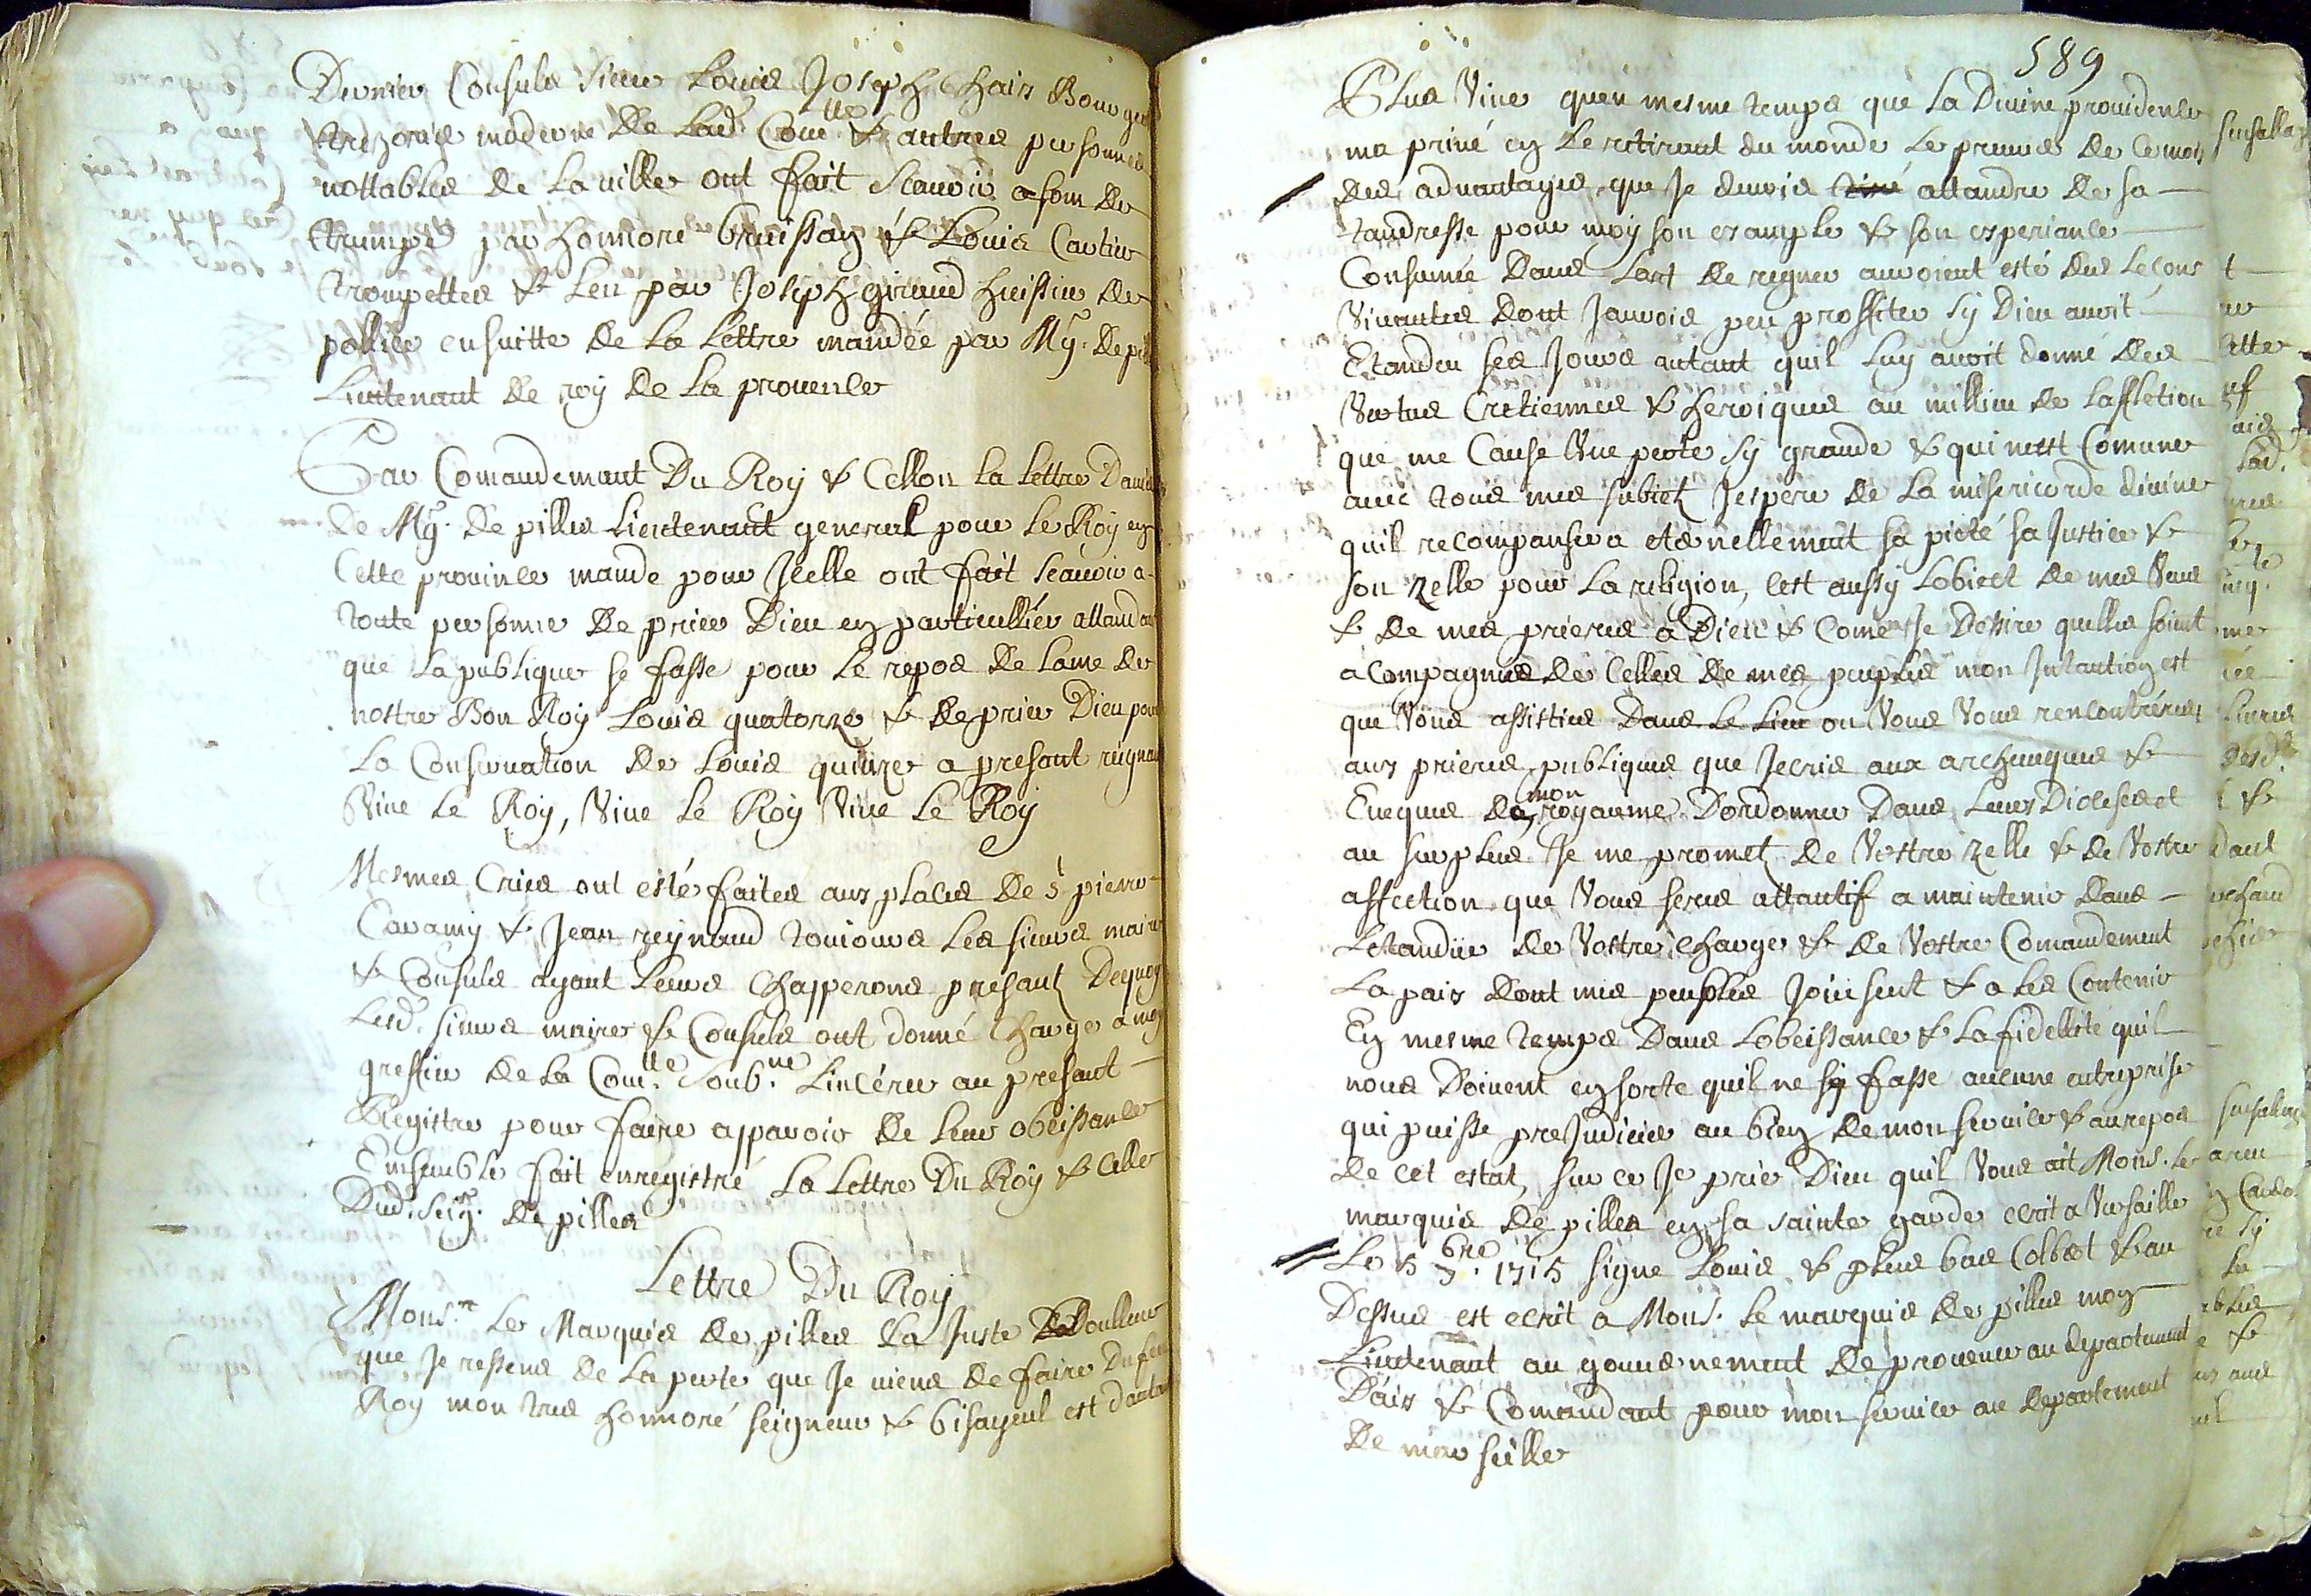 Dernier Consuls Sieur Louis Joseph Chais Bourgeo
trezorier moderne de lad. Com.tté & autres personnes
nottables de la ville ont fait scavoir a son de
trumpe par honnoré bruissan & Louis Cartier
trompettes & leu par Joseph giraud huissier de
pollice ensuitte de la lettre mandée par Mgr. de pil
Lieutenant de roy de la provence
Par Comandemant Du Roy & Cellon la lettre
de Mgr. De pilles Lieutenant general pour le Roy en
Cette province mande pour Icelle ont fait scavoir a
toute personne de prier Dieu en particullier attandant
que la publique se fasse pour le repos de lame de
nostre Bon Roy Louis quatorze & de prier Dieu pour
la Conservation de Louis quinze a presant regnant
Vive le Roy, Vive le Roy Vive le Roy
Mesmes Cries ont esté faites aux places de st pierre
Cavamy & Jean reynaud toujours les sieurs maire
& Consuls ayant leurs Chapperons presant Dequoy
Lesd. sieurs maire & Consuls ont donné Charge a moy
greffier de la Com.tté Soub.né Lincérer au presant
Registre pour faire apparoir de leur obeissance
Ensemble fait enregistré La lettre Du Roy & celle
Dud. Seigr. de pilles
Lettre Du Roy
Mons.r le Marquis de pilles La Juste Doulleur
que Je ressens de la perte que Je viens de faire Du feu
Roy mon tres honnoré seigneur & bisayeul est dautant
589
Plus Vive quen mesme temps que la Divine providence
ma privé en le retirant du monde le premier de ce mois
des advantages que Je devois attandre de sa
tandresse pour moy son exemple & son experiance
Consumée Dans lart de regner auroient esté des leçons
Vivantes dont Jaurois peu proffiter sy Dieu avoit
Etandeu ses Jours autant quil luy avoit donné des
Vertus Cretiennes & heroiques au millieu de laffletion
que me Cause Une perte sy grande & qui mest Comune
avec tous mes subietz Jespere de la misericorde divine
quil recompansera eternellemant sa pieté sa Justice &
son zelle pour la religion, cest aussy lobiect de mes Veus
& de mes prieres a Dieu & Come Je Dessire quelles soint
acompagnées de Celles de mes peuples mon Intantion est
que Vous assisties Dans le Lieu ou Vous Vous rencontréres
aux prieres publiques que Jecris aux archeveques &
Eveques de mon royaume Dordonner Dans leurs Dioceses et
au surplus Je me prometz de Vostre zelle & de Vostre
affection que Vous seres attantif a maintenir dans
Letandüe de Vostre Charge & de Vostre Comandement
La paix dont mes peuples Jouisent & a les Contenir
En mesme temps Dans Lobeissance & la fidellité quil
nous Doivent en sorte quil ne sy fasse aucune entreprise
qui puisse preJudicier au bien de mon service & au repos
de cet estat, sur ce Je prie Dieu quil Vous ait Mons. le
marquis De pilles en sa sainte garde ecrit a Versaille
Le 5 7bre 1715 signe Louis & plus bas Colbert & au
Dessus est ecrit a Mons. le marquis de pilles mon
Lieutenant au gouvernement de provence au departement
Daix & Comandant pour mon service au departement
de marseille